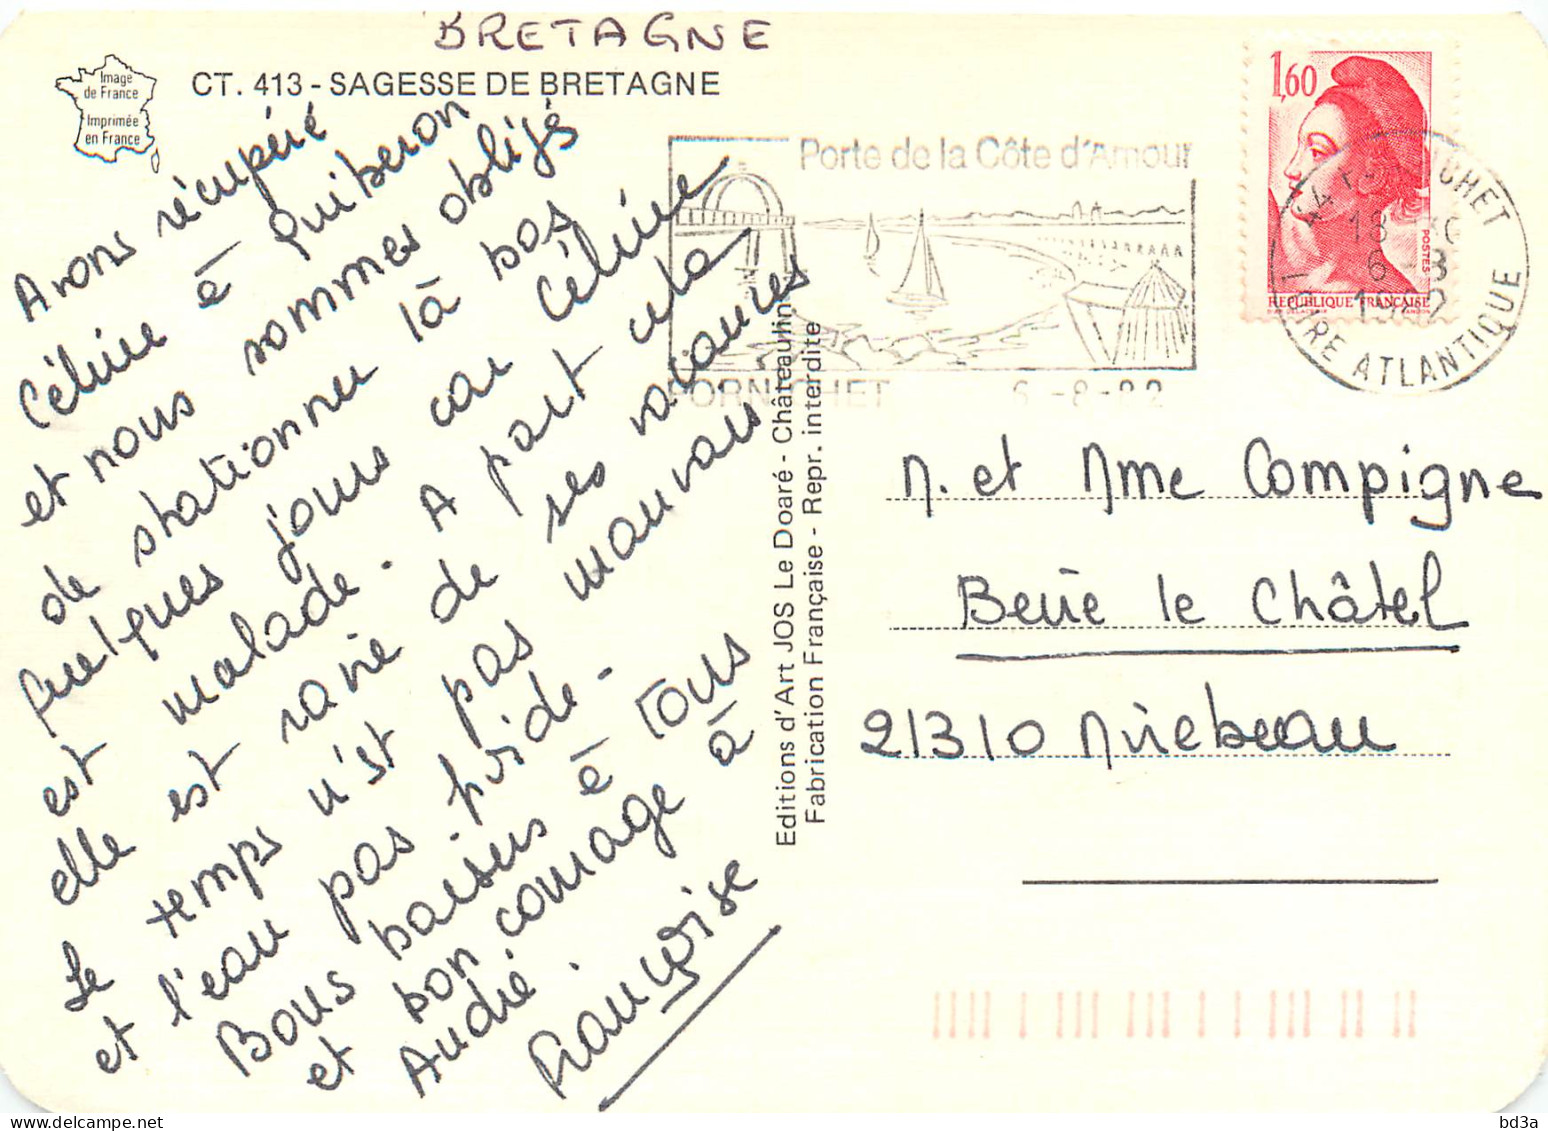 BRETAGNE
Image
de France
Imprimée
en France
CT. 413 - SAGESSE DE BRETAGNE
Avons récupéré
Céline à Quiberon
et nous sommes obligés
de stationner là bas
quelques jours car Céline
est malade. A part cela
elle est ravie de ses vacances
Le temps n'est pas mauvais
et l'eau pas froide.
Bons baisers à tous
et bon courage à
André.
Françoise
Editions d'Art JOS Le Doaré - Châteaulin
Fabrication Française - Repr. interdite
Porte de la Côte d'Amour
PORNICHET 6-8-82
1,60
POSTES
REPUBLIQUE FRANÇAISE
LOIRE ATLANTIQUE
M. et Mme Compigne
Beire le Châtel
21310 Mirebeau
bd3a